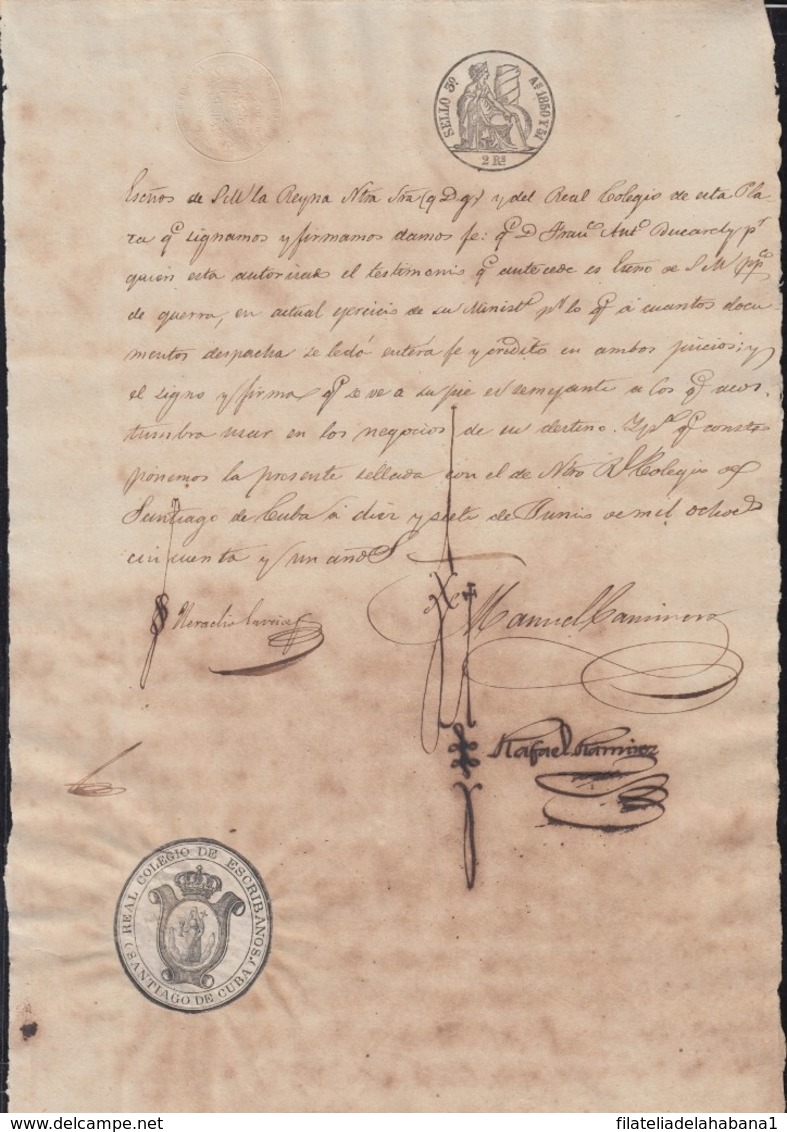 SELLO 3º Aˢ 1850 Y 51
2 Rˢ
Escños de S M la Reyna Ntra Sra (q D g) y del Real Colegio de esta Pla-
za qᵉ signamos y firmamos damos fe: qᵉ D. Franᶜᵒ Antᵒ Ducarely pʳ
quien esta autorizado el testimonio qᵉ antecede es Esno de S M ppᶜᵒ
de guerra, en actual ejercicio de su Ministᵒ pʳ lo qᵉ á cuantos docu-
mentos despacha se le dá entera fe y crédito en ambos juicios; y
el signo y firma qᵉ se ve a su pie es semejante a los qᵉ acos-
tumbra usar en los negocios de su destino. Y pᵃ qᵉ conste
ponemos la presente sellada con el de Ntro Rˡ Colegio
Santiago de Cuba á diez y siete de Junio de mil ochocˢ
cincuenta y un años
Heraclio
Manuel Caminero
Rafael Ramirez
REAL COLEGIO DE ESCRIBANOS
SANTIAGO DE CUBA
delcampe.net
filateliadelahabana1